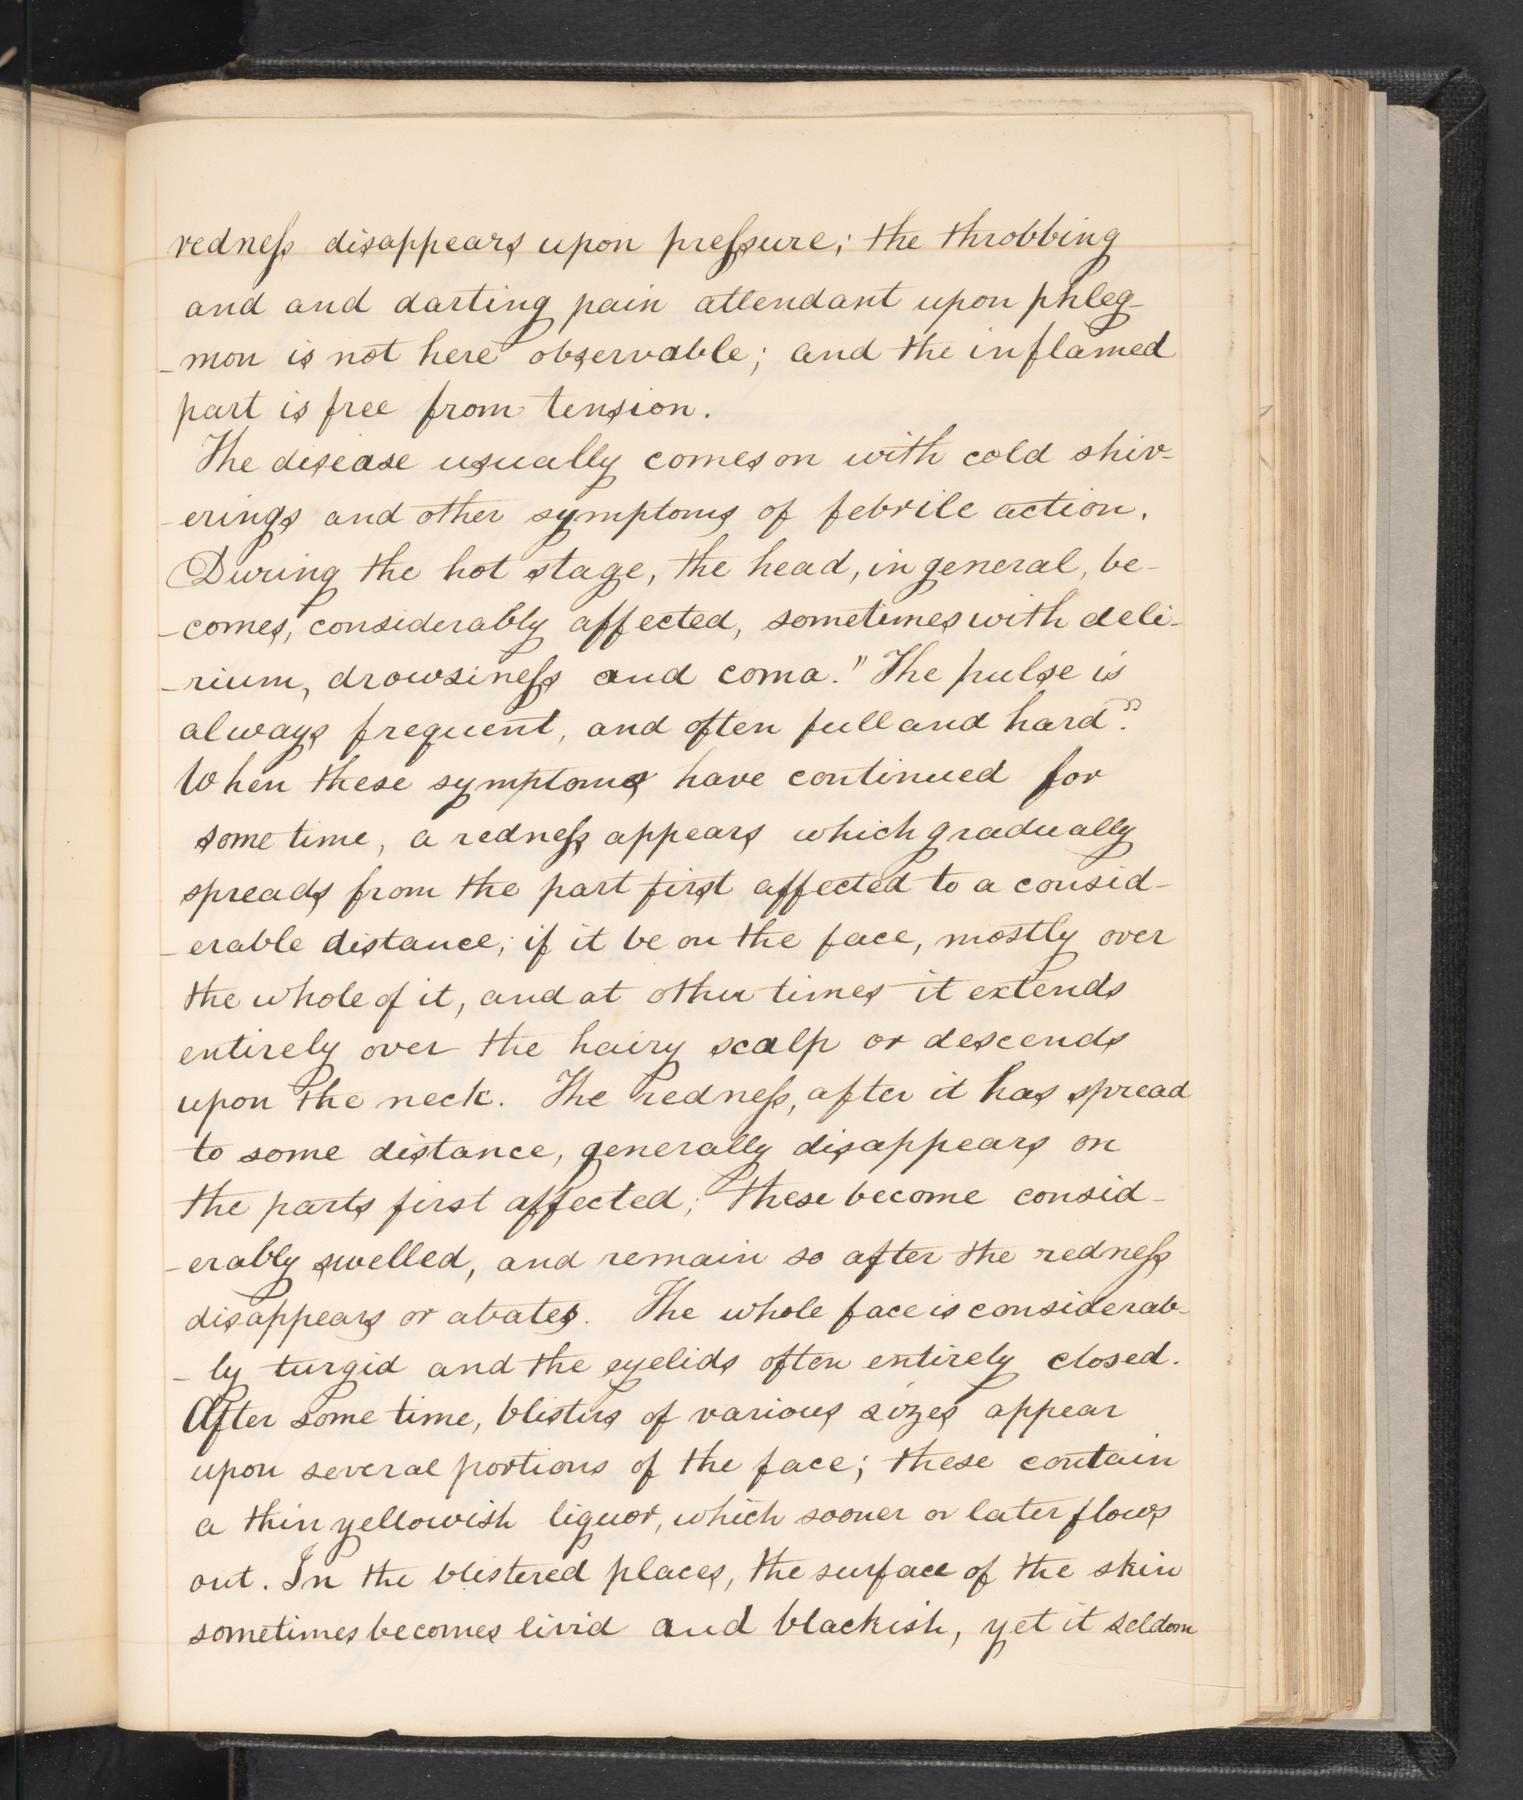 redness disappears upon pressure; the throbbing
and and darting pain attendant upon phleg-
-mon is not here observable; and the inflamed
part is free from tension.
The disease usually comes on with cold shiv-
-erings and other symptoms of febrile action.
During the hot stage, the head, in general, be-
-comes, considerably affected, sometimes with deli-
-rium, drowsiness and coma." The pulse is
always frequent, and often full and hard".
When these symptoms have continued for
some time, a redness appears which gradually
spreads from the part first affected to a consid-
-erable distance; if it be on the face, mostly over
the whole of it, and at other times it extends
entirely over the hairy scalp or descends
upon the neck. The redness, after it has spread
to some distance, generally disappears on
the parts first affected; these become consid-
-erably swelled, and remain so after the redness
disappears or abates. The whole face is considerab-
-ly turgid and the eyelids often entirely closed.
After some time, blisters of various sizes appear
upon several portions of the face; these contain
a thin yellowish liquor, which sooner or later flows
out. In the blistered places, the surface of the skin
sometimes becomes livid and blackish, yet it seldom